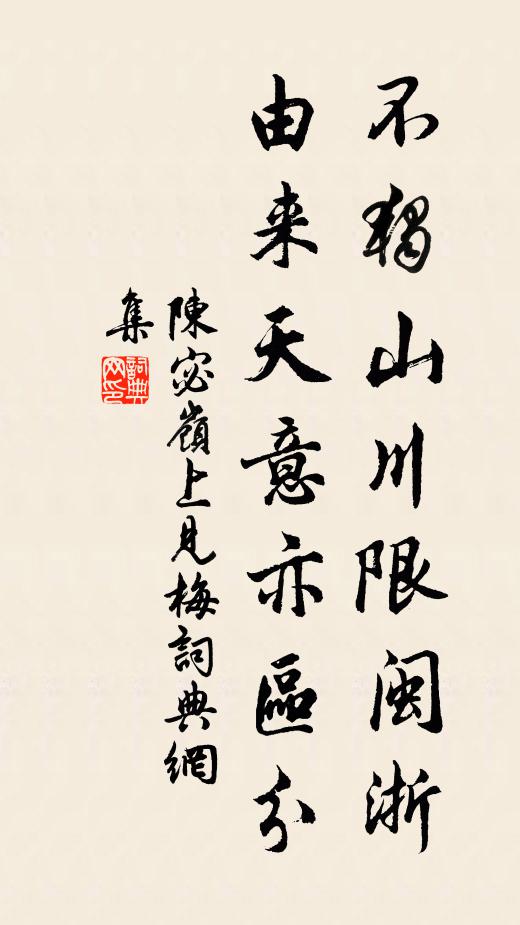 不獨山川限閩浙
由来天意亦區分
陳宓嶺上見梅詞典網
集
詞典
网印